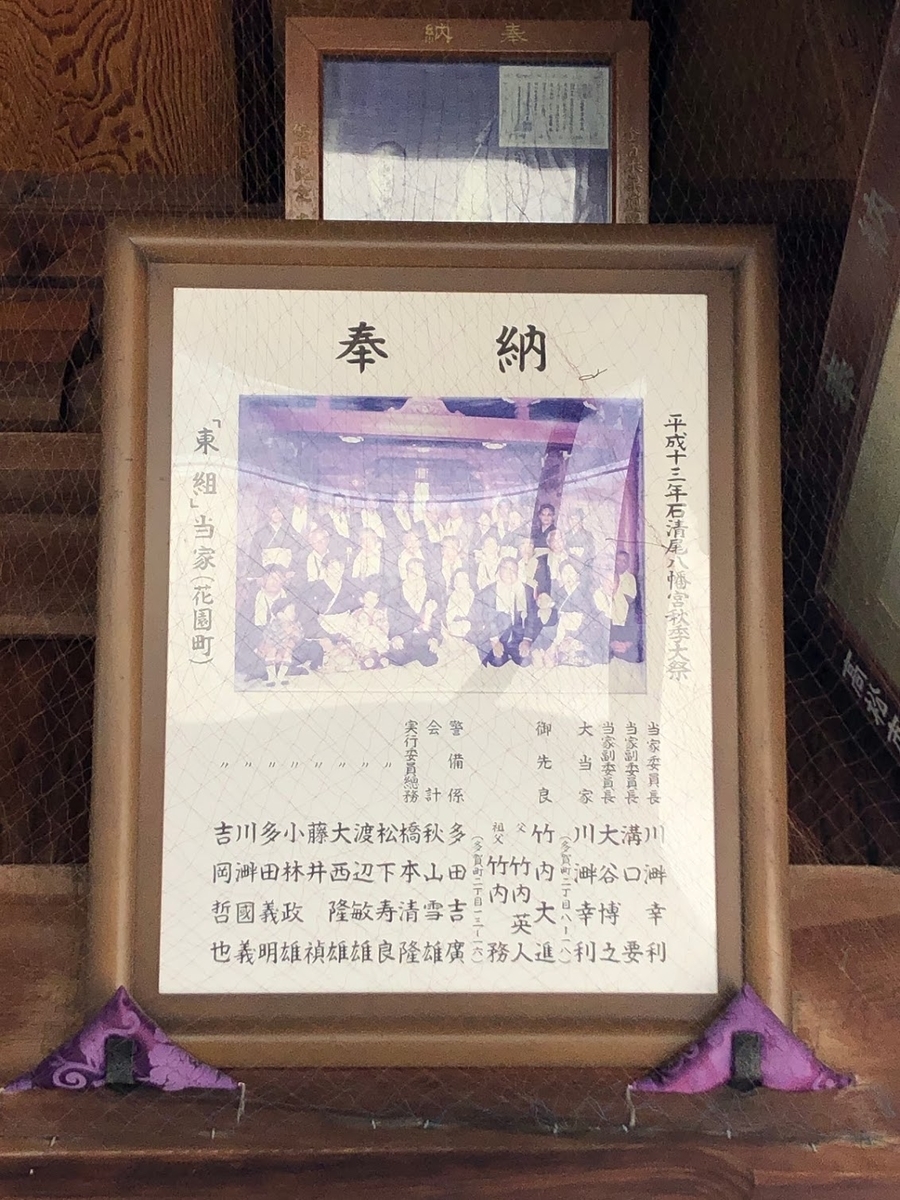 奉納
奉 納
平成十三年石清尾八幡宮秋季大祭
「東組」当家(花園町)
当家委員長 川渊幸利
当家副委員長 溝口 要
当家副委員長 大谷博之
大当家 川渊幸利
(多賀町二丁目八ー一八)
御先良 竹内大進
父 竹内英人
祖父 竹内 務
(多賀町二丁目一三ー一六)
警備係 多田吉廣
会計 秋山雪雄
実行委員総務 橋本清隆
〃 松下寿良
〃 渡辺敏雄
〃 大西隆雄
〃 藤井 禎
〃 小林政雄
〃 多田義明
〃 川渊國義
〃 吉岡哲也